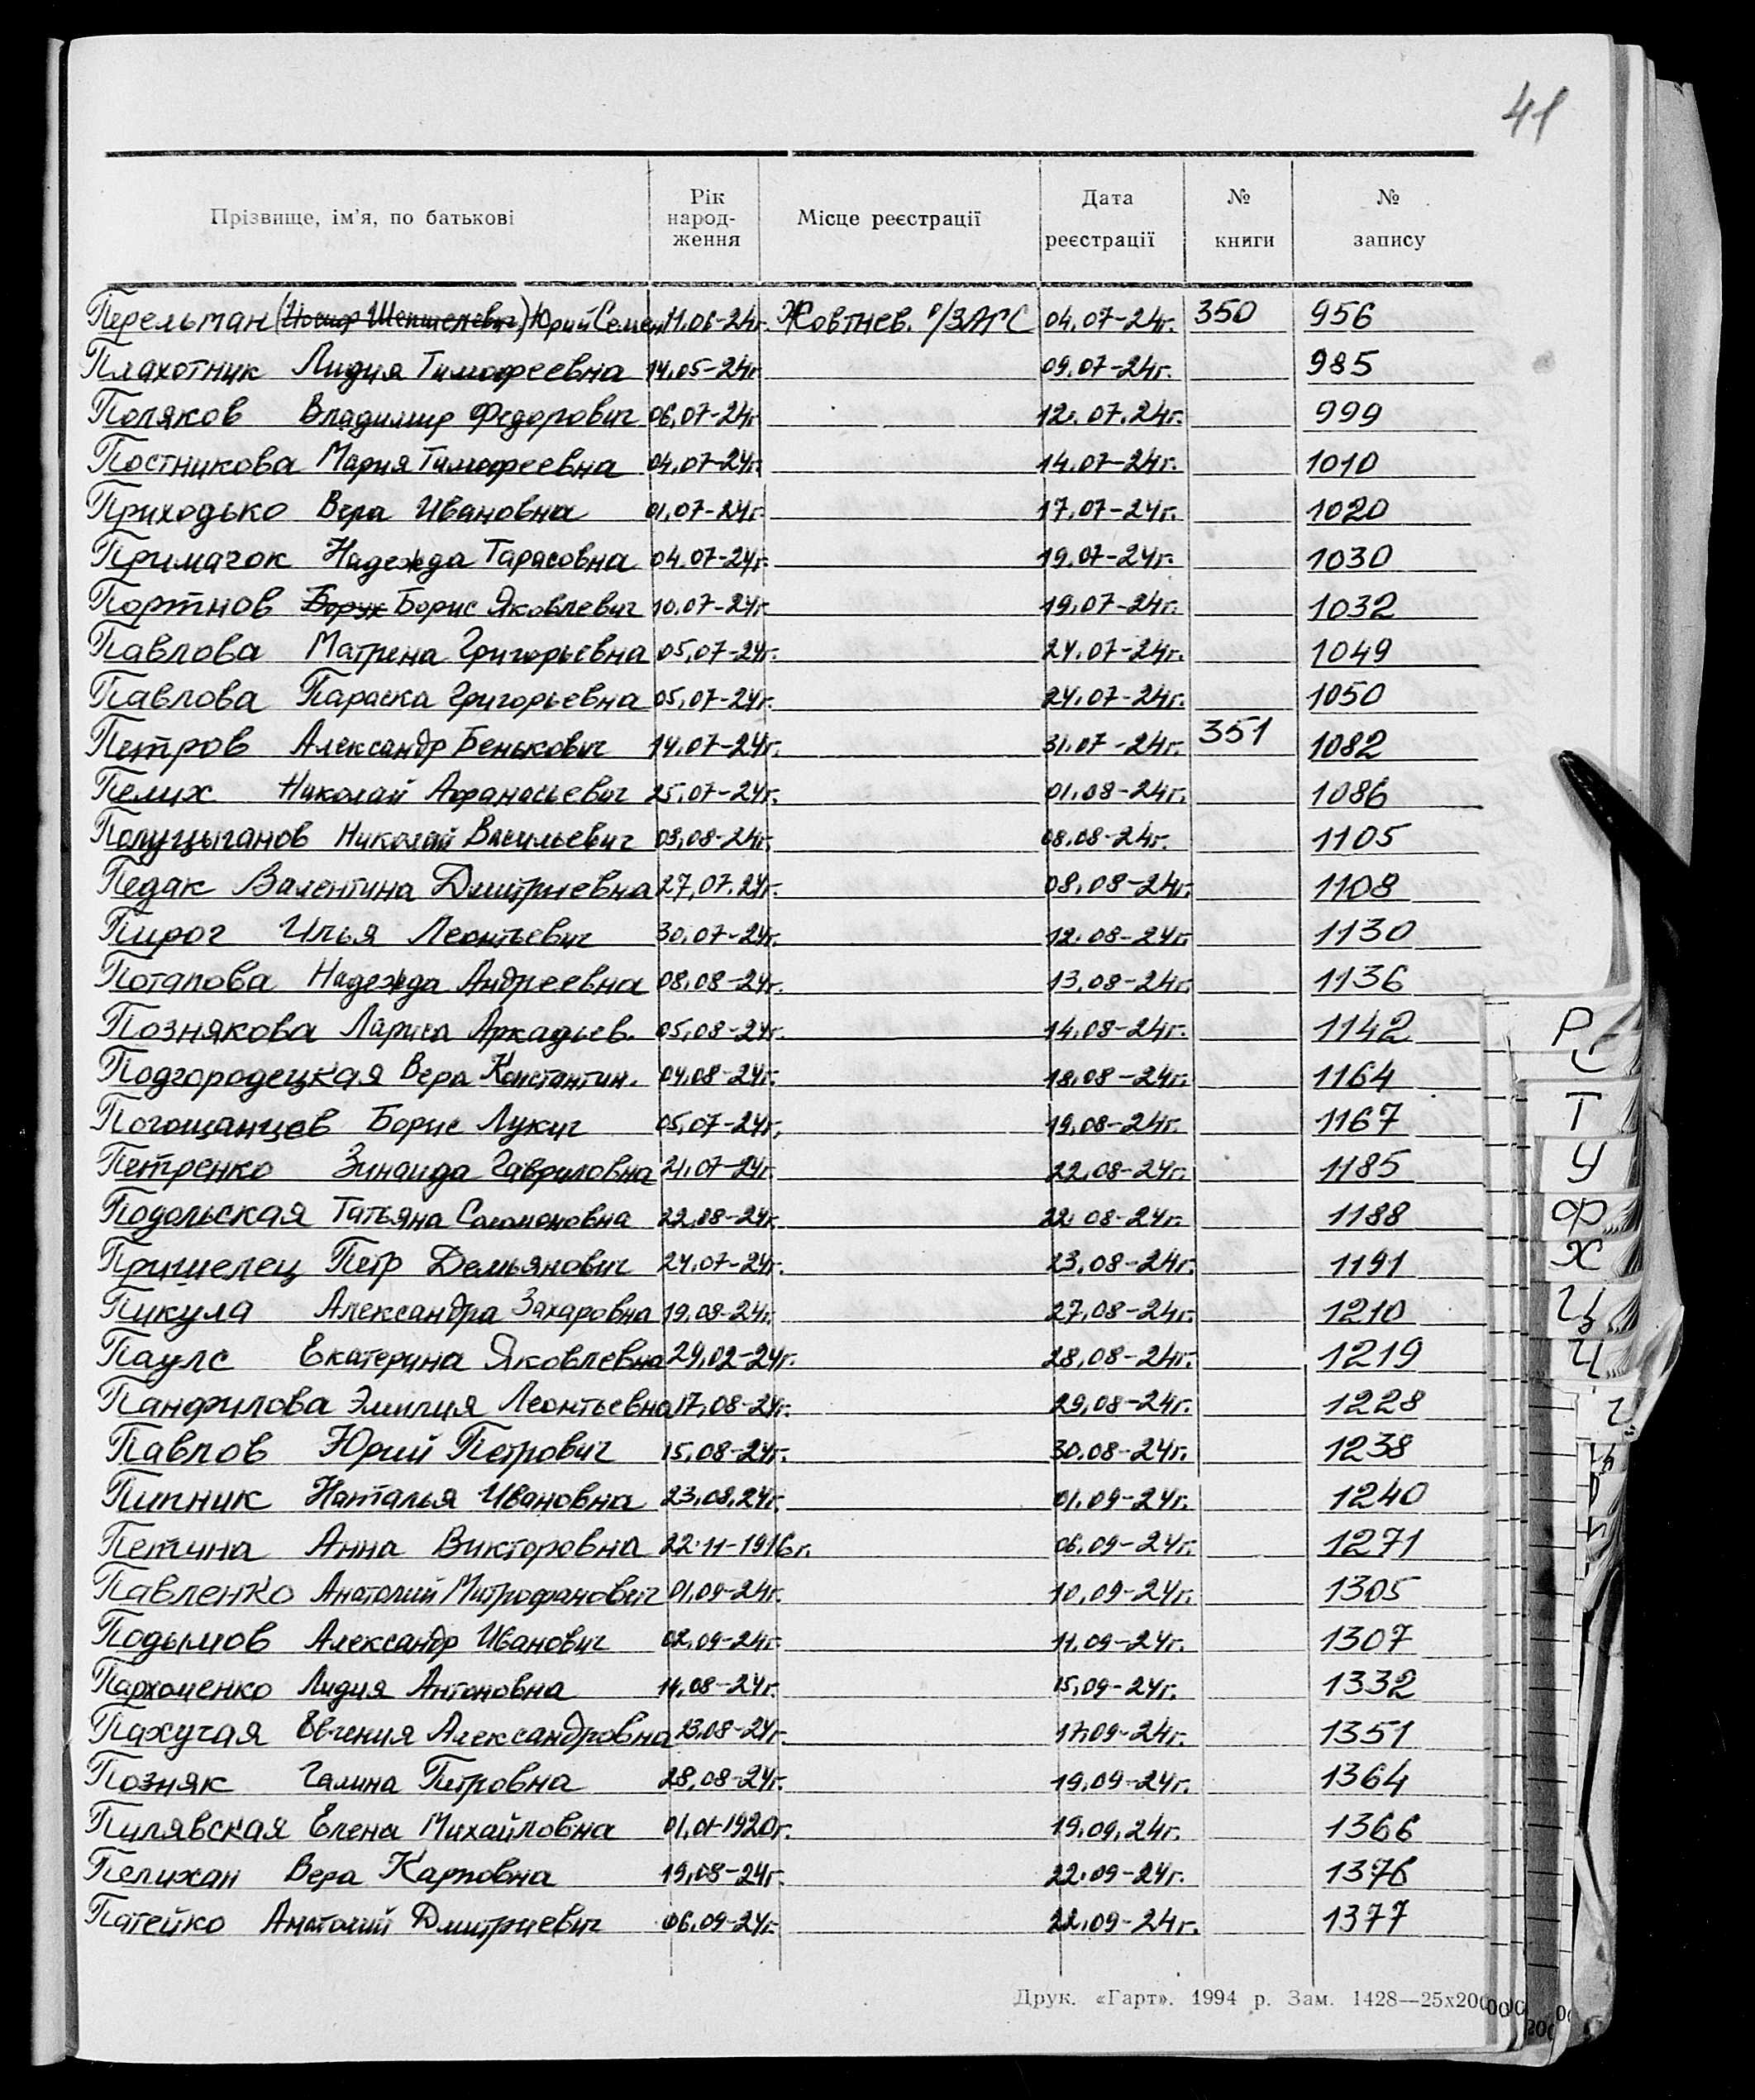 41
Прізвище, ім'я, по батькові Рік народ-ження Місце реєстрації Дата реєстрації № книги № запису
Перельман (Иосиф Шепшелевич) Юрий Семен. 11.06-24г. Жовтнев. р/ЗАГС 04.07-24г. 350 956
Плахотник Лидия Тимофеевна 14.05-24г 09.07-24г. 985
Поляков Владимир Федорович 06.07-24г 12.07.24г. 999
Постникова Мария Тимофеевна 04.07-24г. 14.07-24г. 1010
Приходько Вера Ивановна 01.07-24г. 17.07-24г. 1020
Примачок Надежда Тарасовна 04.07-24г. 19.07-24г. 1030
Портнов Борух Борис Яковлевич 10.07-24г. 19.07-24г. 1032
Павлова Матрена Григорьевна 05.07-24г. 24.07-24г. 1049
Павлова Параска Григорьевна 05.07-24г. 24.07-24г. 1050
Петров Александр Бенькович 14.07-24г. 31.07-24г. 351 1082
Пелих Николай Афанасьевич 25.07-24г. 01.08-24г. 1086
Полуцыганов Николай Васильевич 03.08-24г. 08.08-24г. 1105
Педак Валентина Дмитриевна 27.07.24г. 08.08-24г. 1108
Пирог Илья Леонтьевич 30.07-24г. 12.08-24г 1130
Потапова Надежда Андреевна 08.08-24г. 13.08-24г. 1136
Познякова Лариса Аркадьев. 05.08-24г. 14.08-24г. 1142
Подгородецкая Вера Константин. 04.08-24г. 18.08-24г. 1164
Погощанцев Борис Лукич 05.07-24г. 19.08-24г. 1167
Петренко Зинаида Гавриловна 21.07-24г. 22.08-24г. 1185
Подольская Татьяна Соломоновна 22.08-24г. 22.08-24г. 1188
Пришелец Петр Демьянович 24.07-24г. 23.08-24г. 1191
Пикула Александра Захаровна 19.08-24г. 27.08-24г. 1210
Паулс Екатерина Яковлевна 29.02-24г. 28.08-24г. 1219
Панфилова Эмилия Леонтьевна 17.08-24г. 29.08-24г. 1228
Павлов Юрий Петрович 15.08-24г. 30.08-24г. 1238
Пипник Наталья Ивановна 23.08.24г. 01.09-24г. 1240
Петина Анна Викторовна 22.11-1916г. 06.09-24г. 1271
Павленко Анатолий Митрофанович 01.09-24г. 10.09-24г. 1305
Подымов Александр Иванович 02.09-24г. 11.09-24г. 1307
Пархоменко Лидия Антоновна 14.08-24г. 15.09-24г. 1332
Пахучая Евгения Александровна 23.08-24г. 17.09-24г. 1351
Позняк Галина Петровна 28.08-24г. 19.09-24г. 1364
Пилявская Елена Михайловна 01.01-1920г. 19.09.24г. 1366
Пелихан Вера Карповна 19.08-24г. 22.09-24г. 1376
Патейко Анатолий Дмитриевич 06.09-24г. 22.09-24г. 1377
Друк. «Гарт». 1994 р. Зам. 1428—25х200
Р
Т
У
Ф
Х
Ц
Ч